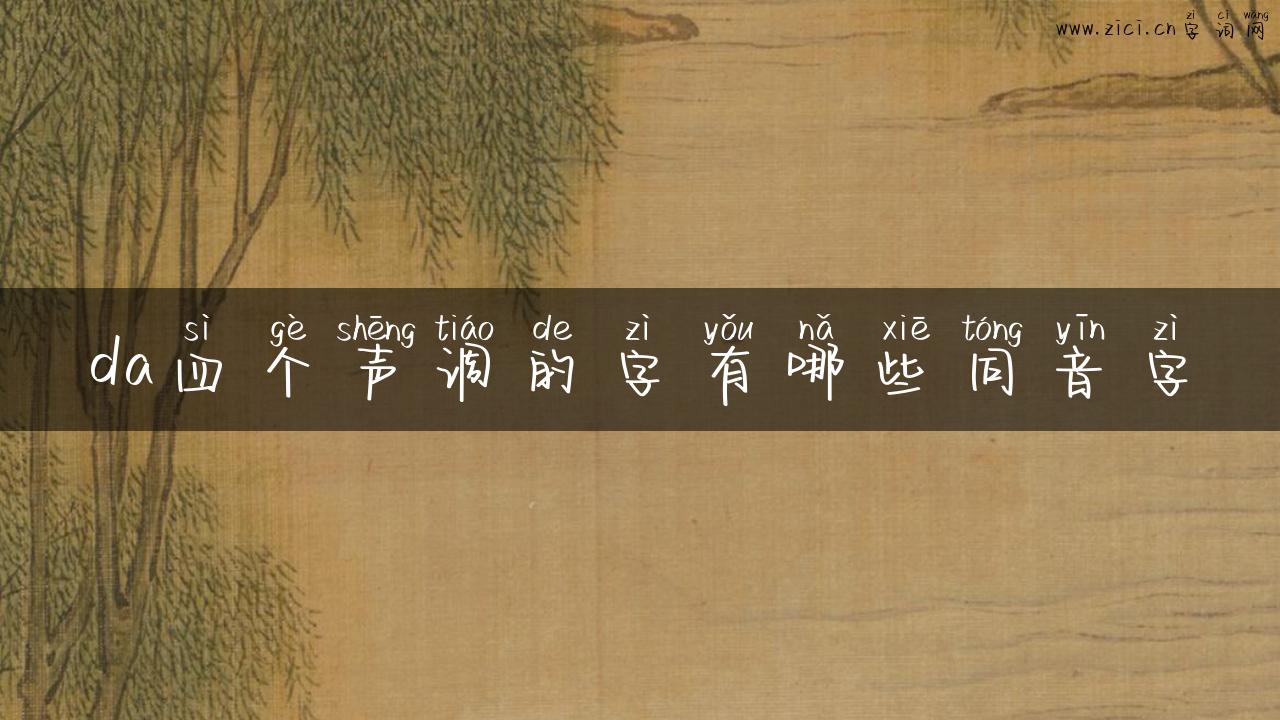 zì cí wǎng
www.zici.cn字词网
sì gè shēng tiáo de zì yǒu nǎ xiē tóng yīn zì
da四个声调的字有哪些同音字